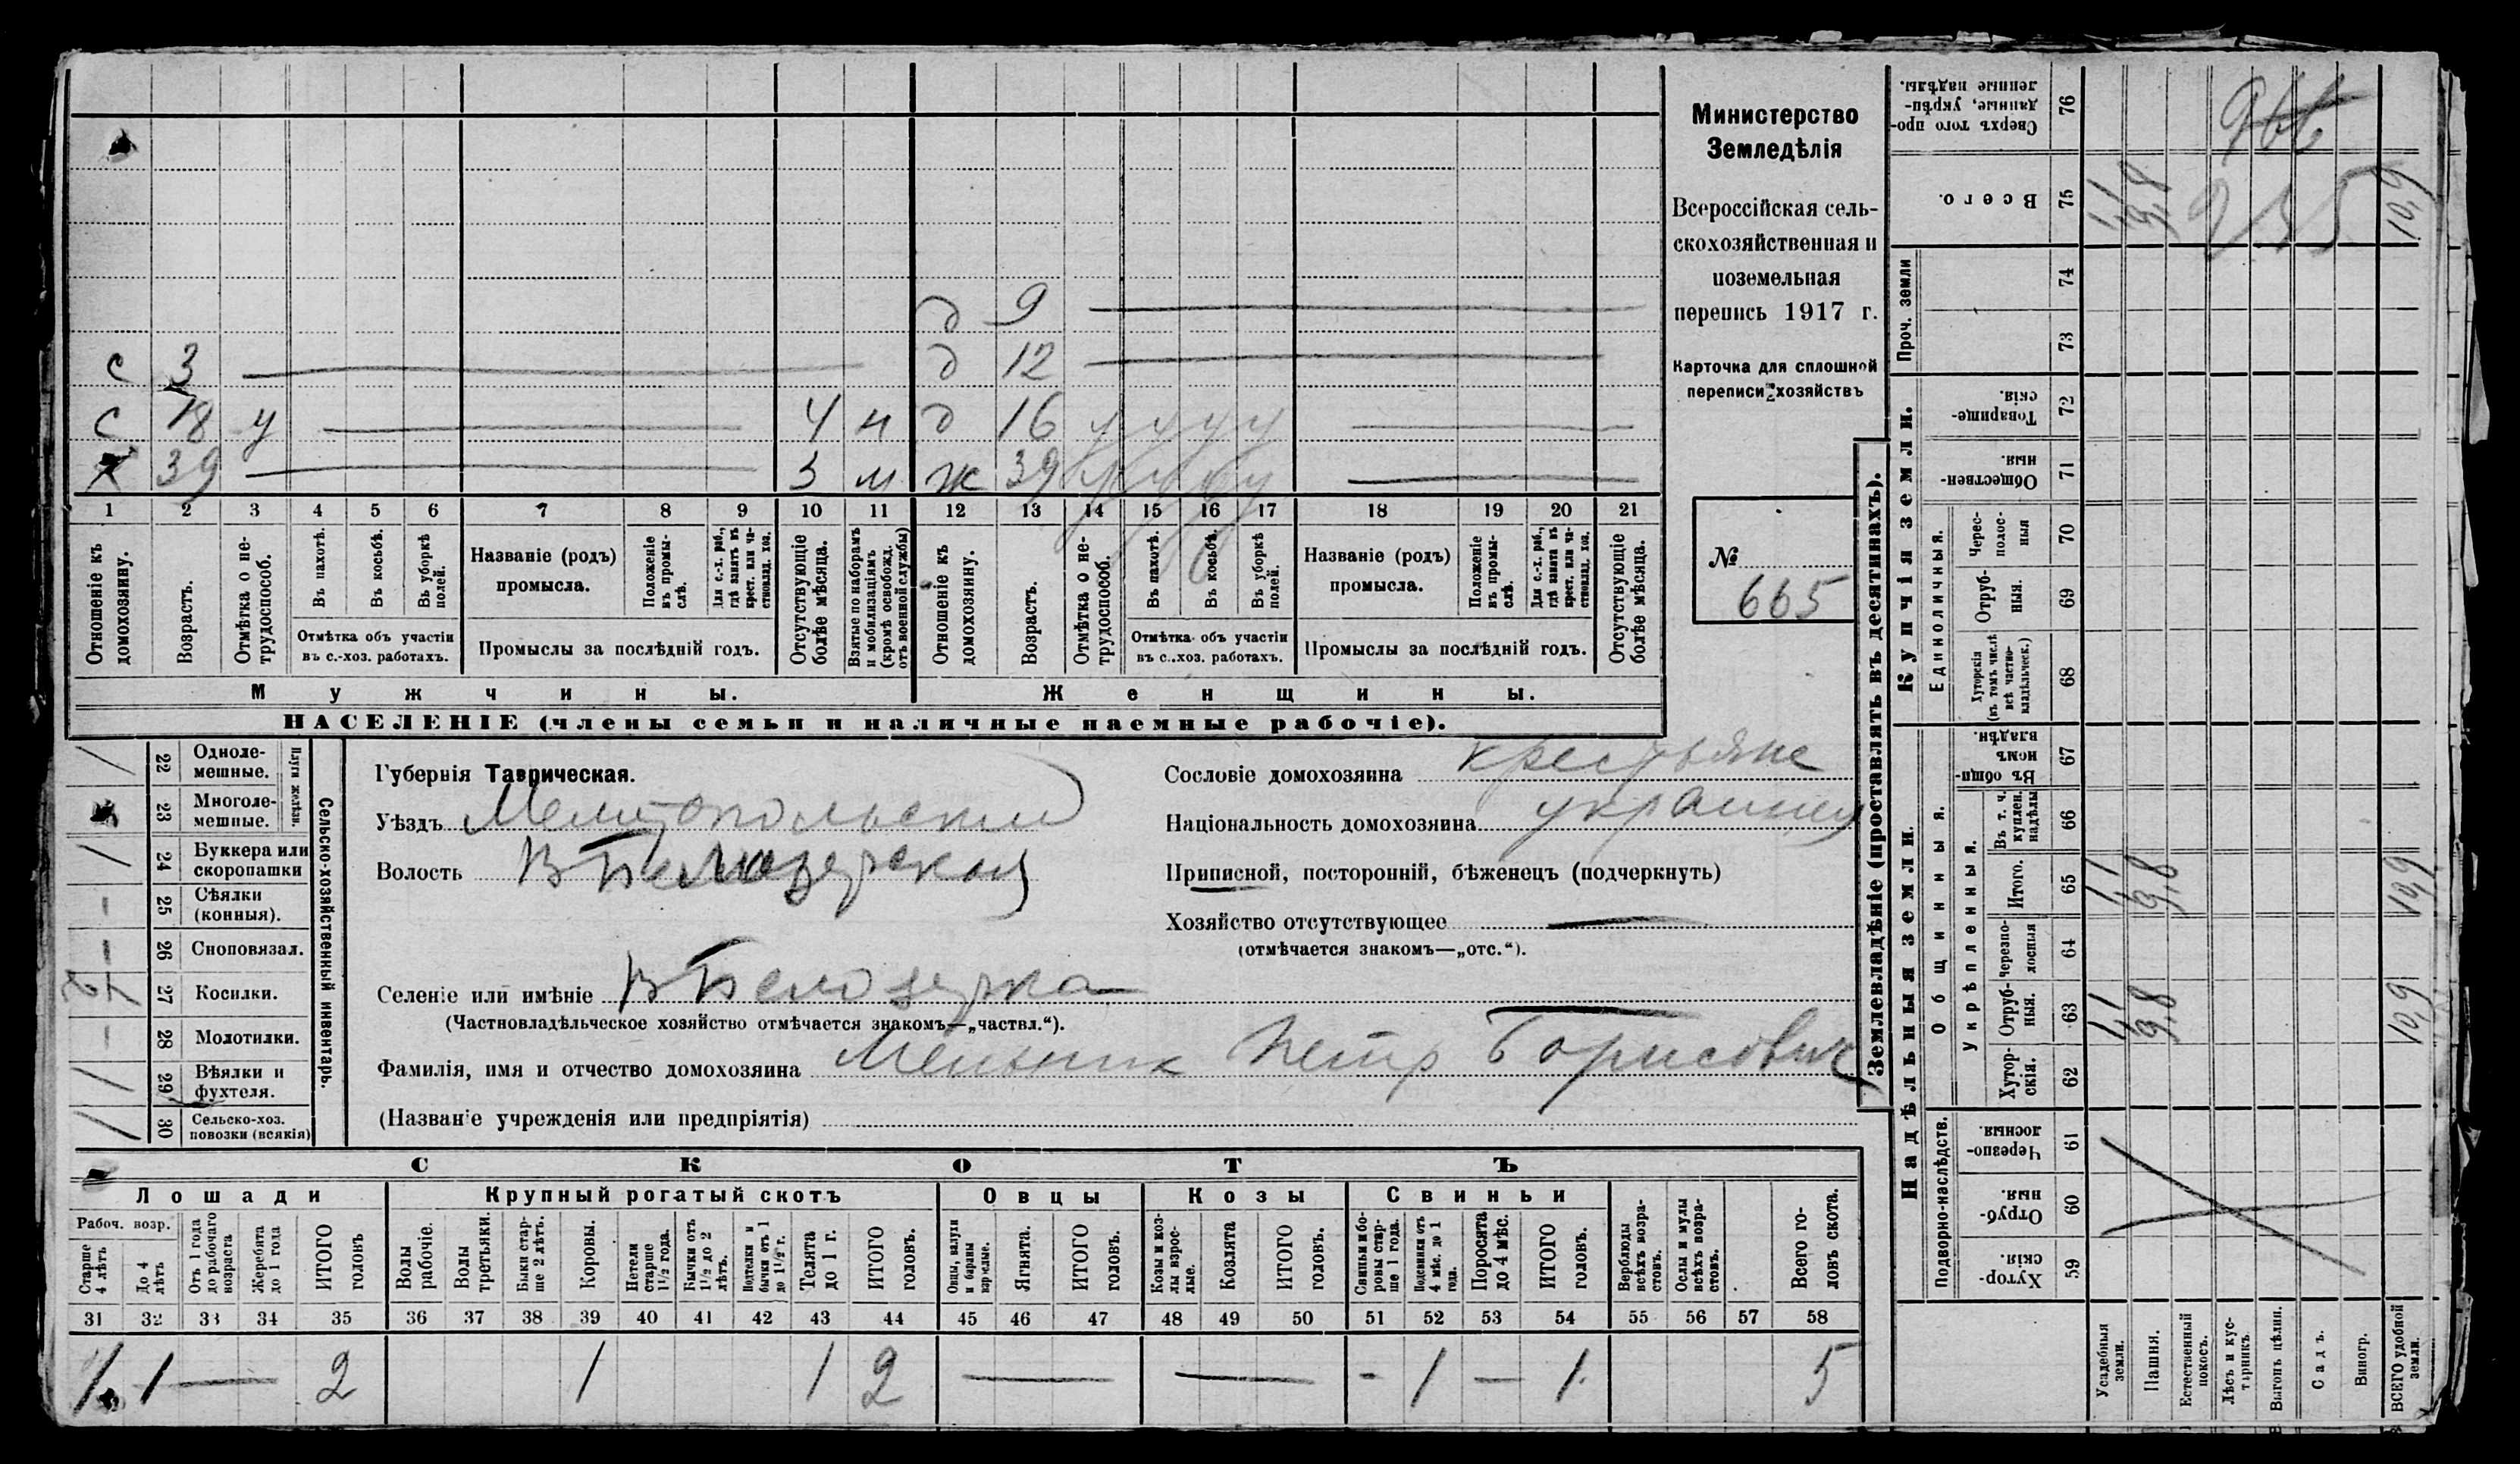 Министерство
Земледѣлія
Всероссійская сель-
скохозяйственная и
поземельная
перепись 1917 г.
Карточка для сплошной
переписи хозяйствъ
№
665
д 9
с 3 д 12
с 18 у 4 н д 16 у у у у
х 39 3 м ж 39
1 2 3 4 5 6 7 8 9 10 11 12 13 14 15 16 17 18 19 20 21
Отношеніе къ домохозяину.
Возрастъ.
Отмѣтка о не-трудоспособ.
Въ пахотѣ.
Въ косьбѣ.
Въ уборкѣ полей.
Отмѣтка объ участіи
въ с.-хоз. работахъ.
Названіе (родъ)
промысла.
Положеніе въ промы-слѣ.
Для с.-х. раб., гдѣ занятъ въ крест. или ча-стновлад. хоз.
Промыслы за послѣдній годъ.
Отсутствующіе болѣе мѣсяца.
Взятые по наборамъ и мобилизаціямъ (кромѣ освобожд. отъ военной службы)
Отношеніе къ домохозяину.
Возрастъ.
Отмѣтка о не-трудоспособ.
Въ пахотѣ.
Въ косьбѣ.
Въ уборкѣ полей.
Отмѣтка объ участіи
въ с.-хоз. работахъ.
Названіе (родъ)
промысла.
Положеніе въ промы-слѣ.
Для с.-х. раб., гдѣ занята въ крест. или ча-стновлад. хоз.
Промыслы за послѣдній годъ.
Отсутствующіе болѣе мѣсяца.
Мужчины.
Женщины.
НАСЕЛЕНІЕ (члены семьи и наличные наемные рабочіе).
Сельско-хозяйственный инвентарь.
Плуги желѣзн.
22 Одноле-мешные.
23 Многоле-мешные.
24 Буккера или скоропашки
25 Сѣялки (конныя).
26 Сноповязал.
27 Косилки.
28 Молотилки.
29 Вѣялки и фухтеля.
30 Сельско-хоз. повозки (всякія)
Губернія Таврическая.
Уѣздъ Мелитопольский
Волость В Белозерская
Селеніе или имѣніе В Белозерка
(Частновладѣльческое хозяйство отмѣчается знакомъ—„частвл.“).
Фамилія, имя и отчество домохозяина Мельник Петр Борисович
(Названіе учрежденія или предпріятія)
Сословіе домохозяина крестьяне
Національность домохозяина украинец
Приписной, посторонній, бѣженецъ (подчеркнуть)
Хозяйство отсутствующее
(отмѣчается знакомъ—„отс.“).
СКОТЪ
Лошади
Крупный рогатый скотъ
Овцы
Козы
Свиньи
Рабоч. возр.
Старше 4 лѣтъ
До 4 лѣтъ
Отъ 1 года до рабочаго возраста
Жеребята до 1 года
ИТОГО головъ
Волы рабочіе.
Волы третьяки.
Быки стар-ше 2 лѣтъ.
Коровы.
Нетели старше 1½ года.
Бычки отъ 1½ до 2 лѣтъ.
Подтелки и бычки отъ 1 до 1½ г.
Телята до 1 г.
ИТОГО головъ.
Овцы, валухи и бараны взрослые.
Ягнята.
ИТОГО головъ.
Козы и коз-лы взрос-лые.
Козлята
ИТОГО головъ.
Свиньи и бо-ровы стар-ше 1 года.
Подсвинки отъ 4 мѣс. до 1 года.
Поросята до 4 мѣс.
ИТОГО головъ.
Верблюды всѣхъ возра-стовъ.
Ослы и мулы всѣхъ возра-стовъ.
Всего го-ловъ скота.
31 32 33 34 35 36 37 38 39 40 41 42 43 44 45 46 47 48 49 50 51 52 53 54 55 56 57 58
1 1 — 2 1 1 2 — — - 1 — 1 5
Землевладѣніе (проставлять въ десятинахъ).
Надѣльныя земли.
Купчія земли.
Проч. земли
Общинныя.
Укрѣпленныя.
Подворно-наслѣдств.
Единоличныя.
76 Сверхъ того про-данные, укрѣп-ленные надѣлы.
75 Всего. 1,1 9,8 10,9
74
73
72 Товарище-скія.
71 Обществен-ныя.
70 Черес-полос-ныя
69 Отруб-ныя.
68 Хуторскія (въ томъ числѣ всѣ частно-владѣльческ.)
67 Въ общи-номъ владѣн.
66 Въ т. ч. куплен. надѣлы
65 Итого. 1,1 9,8 10,9
64 Черезпо-лосныя
63 Отруб-ныя. 1,1 9,8 10,9
62 Хутор-скія.
61 Черезпо-лосныя.
60 Отруб-ныя.
59 Хутор-скія.
Усадебныя земли.
Пашня.
Естественный покосъ.
Лѣсъ и кус-тарникъ.
Выгонъ цѣлин.
Садъ.
Виногр.
ВСЕГО удобной земли.